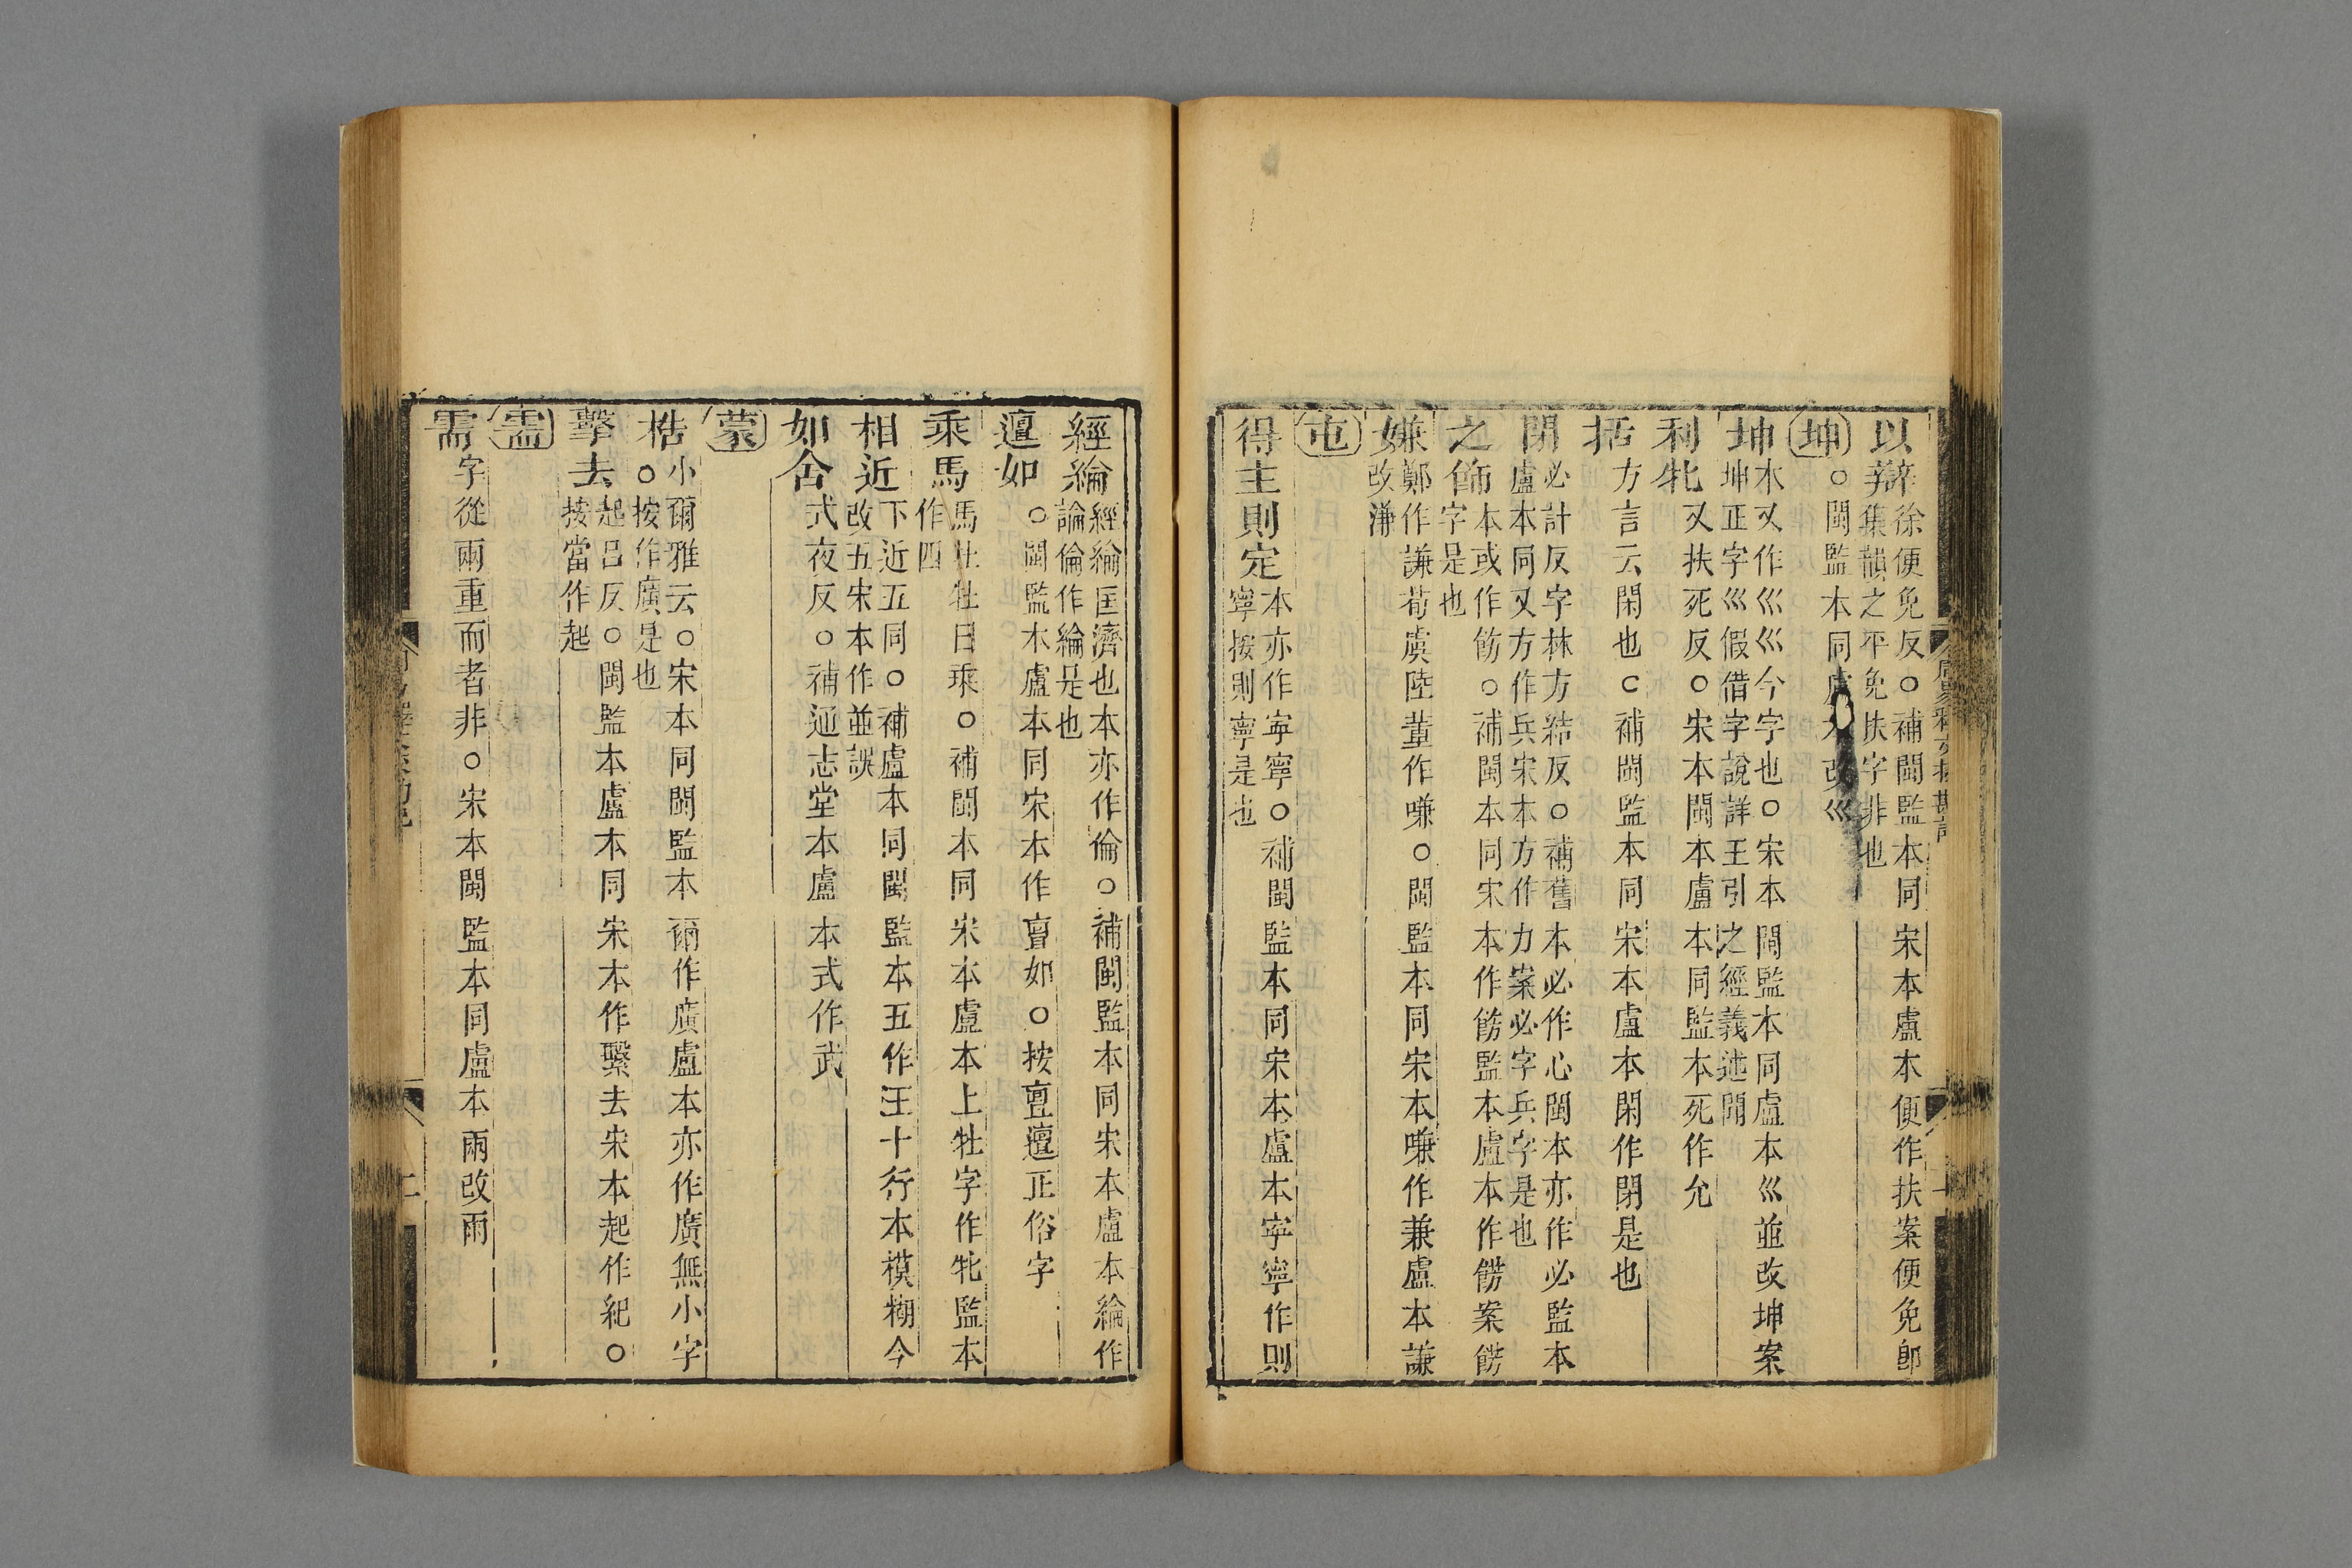 以辯徐便免反○補閩監本同宋本盧本便作扶案便免郎
集韻之平免扶字非也
坤
○閩監本同盧本改巛
坤本又作巛巛今字也○宋本閩監本同盧本巛並改坤案
坤正字巛假借字說詳王引之經義述聞
利牝又扶死反○宋本閩本盧本同監本死作允
括方言云閑也○補閩監本同宋本盧本閑作閉是也
閉必計反字林方結反○補舊本必作心閩本亦作必監本
盧本同又方作兵宋本方作力案必字兵字是也
之飾本或作飭○補閩本同宋本作餝監本盧本作餝案餝
字是也
嫌鄭作謙荀虞陸董作嗛○閩監本同宋本嗛作兼盧本謙
改溓
屯
得主則定本亦作寍寧○補閩監本同宋本盧本寍寧作則
寧按則寧是也
經綸經綸匡濟也本亦作倫○補閩監本同宋本盧本綸作
論倫作綸是也
邅如○閩監本盧本同宋本作亶如○按亶邅正俗字
乘馬馬牡牡曰乘○補閩本同宋本盧本上牡字作牝監本
作四
相近下近五同○補盧本同閩監本五作王十行本模糊今
改五宋本作並誤
如舍式夜反○補通志堂本盧本式作武
蒙
梏小爾雅云○宋本同閩監本爾作廣盧本亦作廣無小字
○按作廣是也
擊去起呂反○閩監本盧本同宋本作繫去宋本起作紀○
按當作起
需
需字從兩重而者非○宋本閩監本同盧本兩改雨